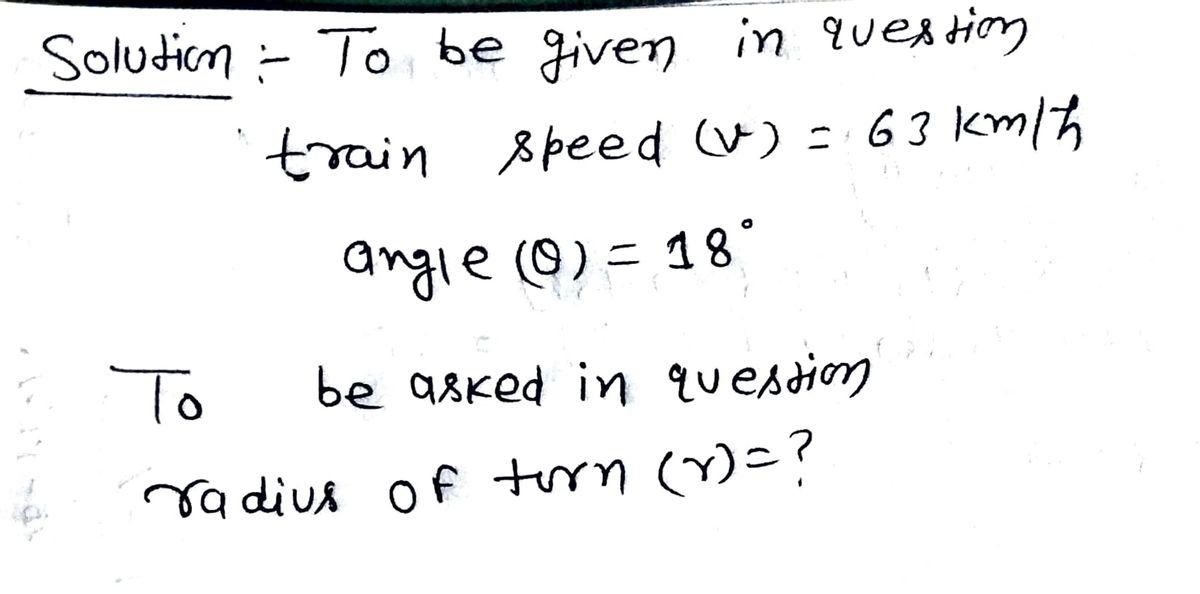 Solution :- To be given in question
train speed (v) = 63 km/h
angle (θ) = 18°
To be asked in question
radius of turn (r)=?